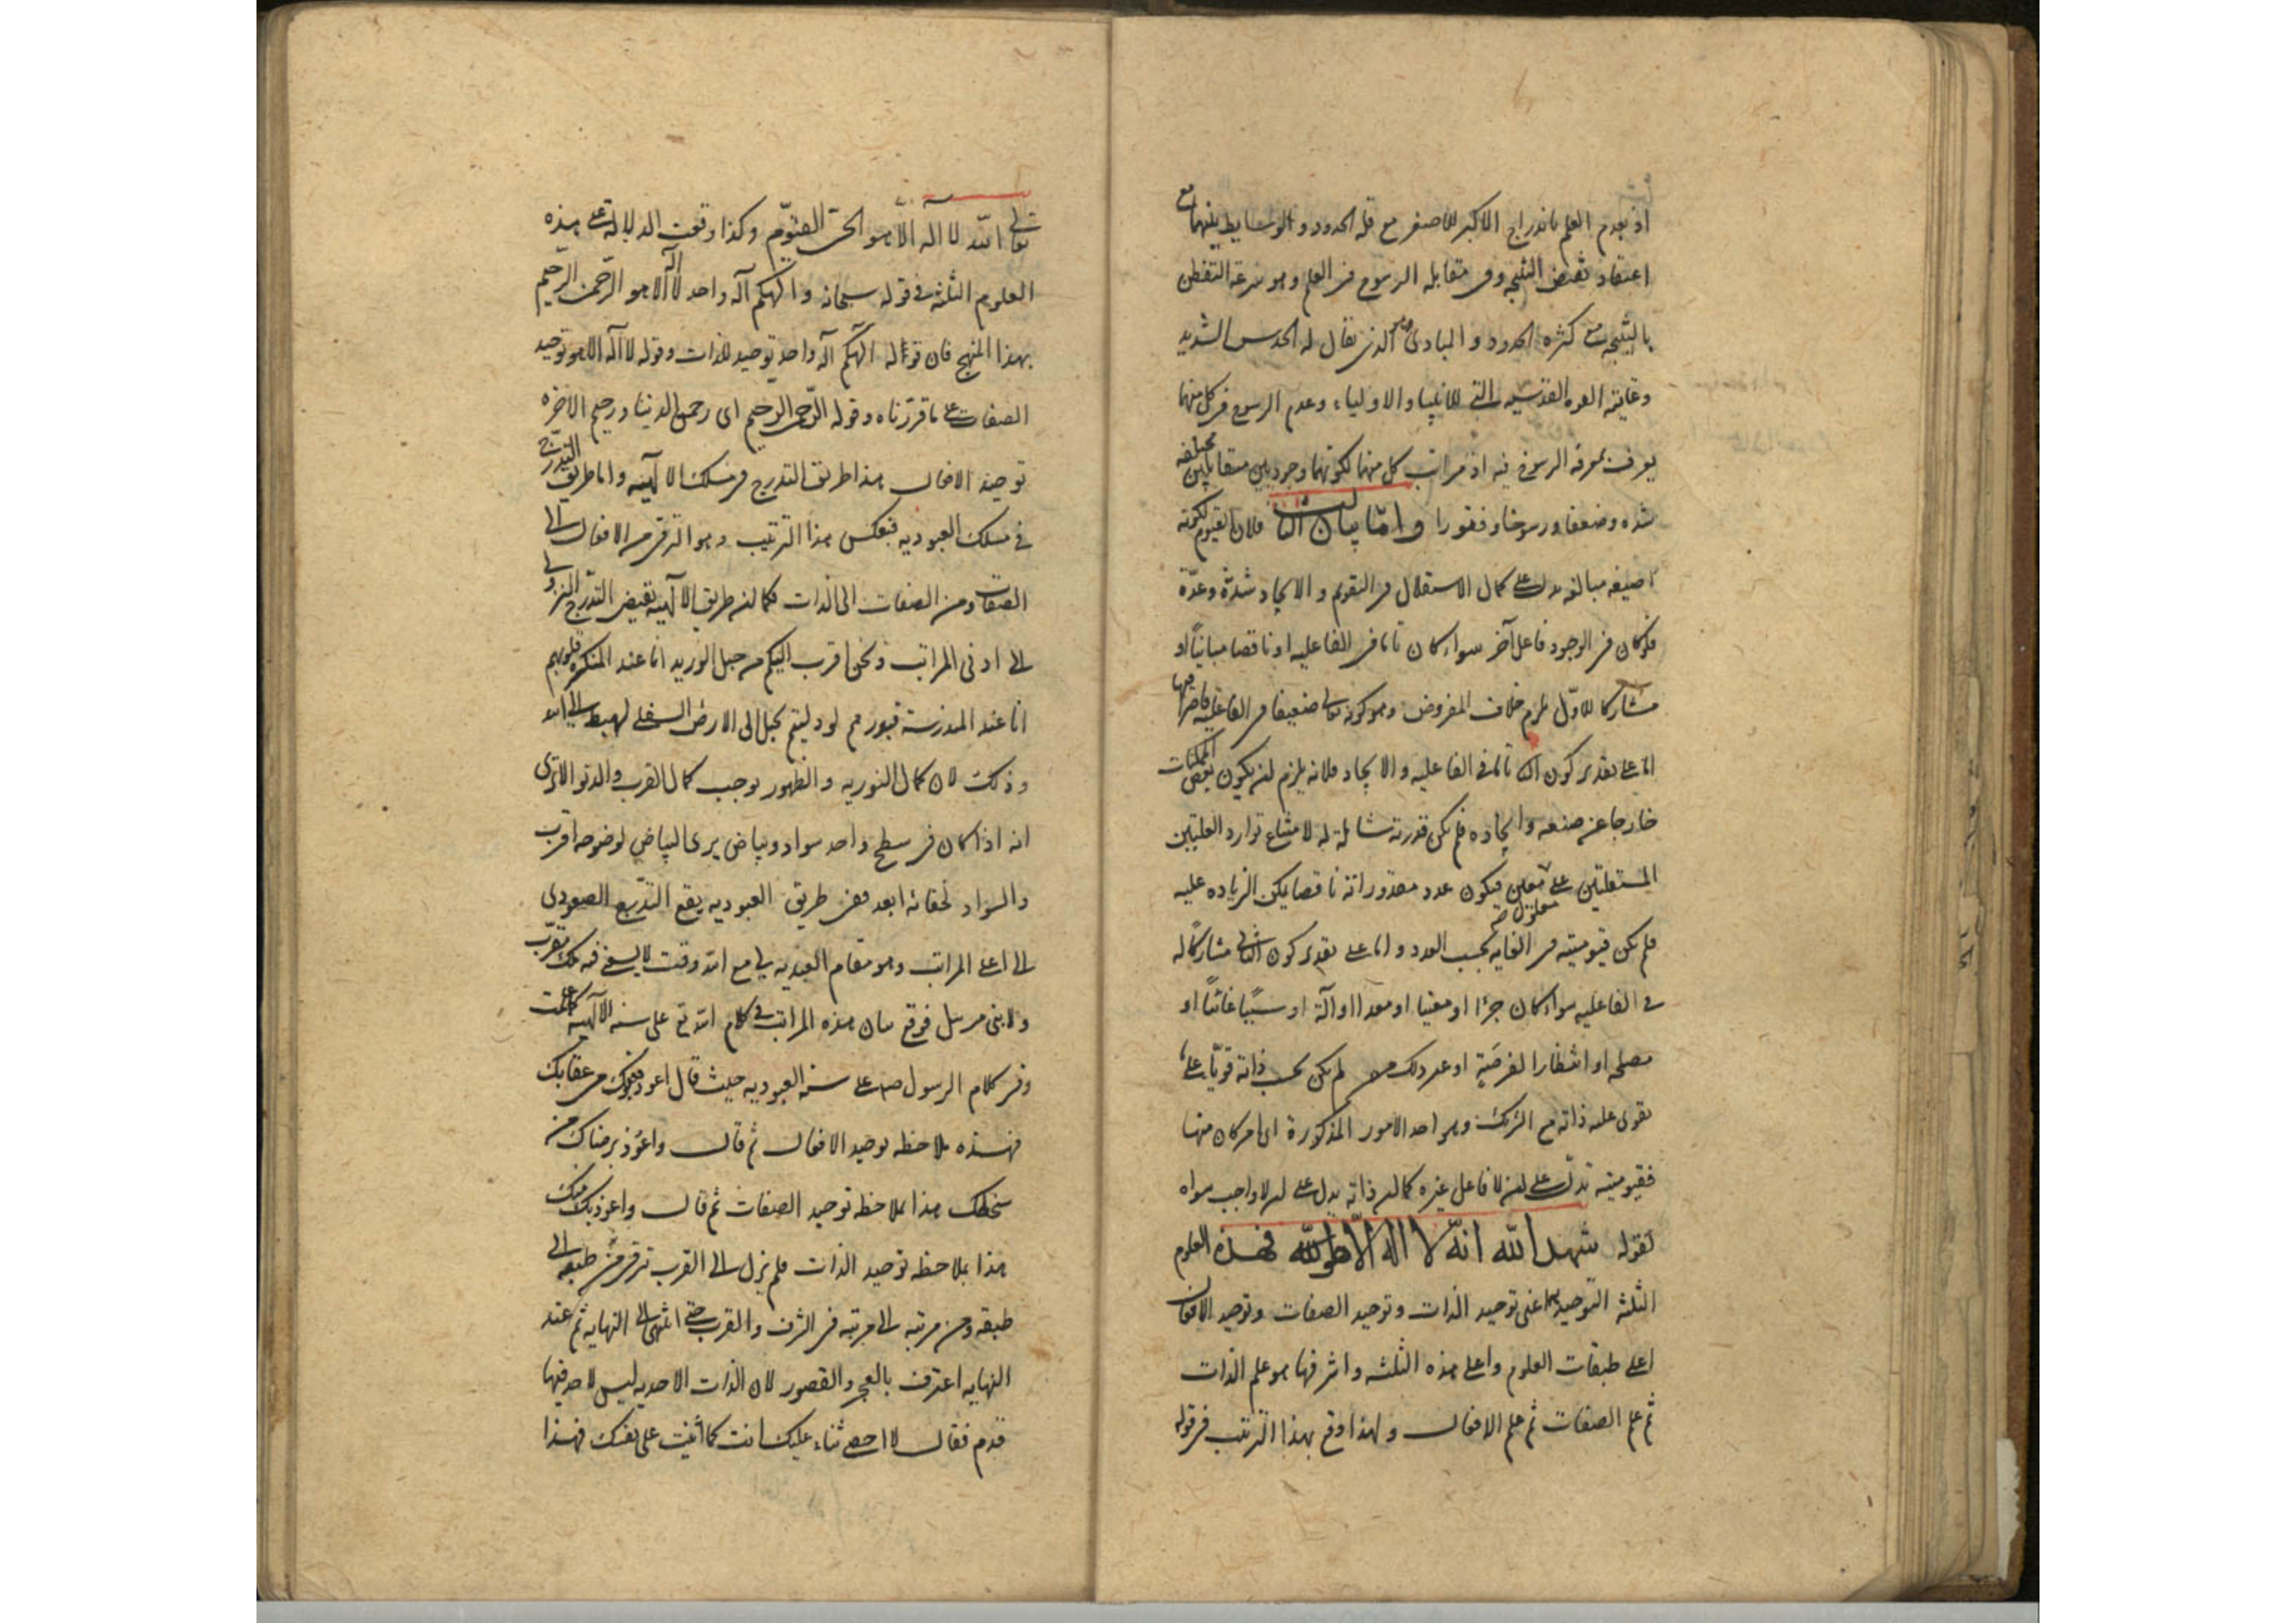 اذ بعدم العلم باندراج الاكبر للاصغر مع قلة الحدود و الوسايط بينهما مع
اعتقاد نقيض النتيجة وفى مقابله الرسوخ فى العلم وهو سرعة التفطن
بالنتيجة مع كثرة الحدود و المبادى وهو الذى يقال له الحدس الشديد
وغايته القوه القدسيه التى للانبيا والاولياء وعدم الرسوخ فى كل منهما
يعرف بمعرفة الرسوخ فيه اذ مراتب كل منهما لكونهما وجوديين متقابلين مختلفه
شده وضعفا ورسوخا وفتورا واما بيان الثالث فلان القيوم لكونه
صيغه مبالغه يدل على كمال الاستقلال فى التقويم و الايجاد شدّة وعدّة
فلو كان فى الوجود فاعل آخر سواء كان تاما فى الفاعليه او ناقصا مباينا او
مشاركا للاوّل يلزم خلاف المفروض وهو كونه تعالى ضعيفا فى الفاعليه قاصرا فيها
اما على تقدير كون الثانى تاما فى الفاعليه والايجاد فلانه يلزم ان يكون بعض الممكنات
خارجا عن صنعه وايجاده فلم يكن قدرته شاملة له لامتناع توارد العلتين
المستقلتين على معلول معين فيكون عدد مقدوراته ناقصا يمكن الزياده عليه
فلم يكن قيوميته فى الغايه بحسب العدد واما على تقدير كون الثانى مشاركا له
فى الفاعليه سواء كان جزءا او معينا او معدا او آلة او سببا غائيا او
مصلحه او انتظارا لفرصة او غير ذلك لم يكن بحسب ذاته قويا على
يقوى عليه ذاته مع الشريك وهو احد الامور المذكورة اى امر كان منها
فقيوميته تدل على ان لا فاعل غيره كما ان ذاته يدل على ان لا واجب سواه
لقوله شهد الله انه لا اله الا هو فهذه العلوم
الثلثه التوحيديه اعنى توحيد الذات وتوحيد الصفات وتوحيد الافعال
اعلى طبقات العلوم واعلى هذه الثلثه واشرفها هو علم الذات
ثم علم الصفات ثم علم الافعال ولهذا وقع بهذا الترتيب فى قوله
تعالى الله لا اله الا هو الحىّ القيّوم وكذا وقعت الدلاله على هذه
العلوم الثلثه فى قوله سبحانه والهكم آله واحد لا اله الا هو الرّحمن الرّحيم
بهذا المنهج فان قوله الهكم آله واحد توحيد للذات وقوله لا اله الا هو توحيد
الصفات على ما قررناه وقوله الرّحمن الرحيم اى رحمن الدنيا ورحيم الاخره
توحيد الافعال هذا طريق التدرج فى مسلك الالهيه واما طريق التدرّج
فى مسلك العبوديه فبعكس هذا الترتيب وهو الترقى من الافعال الى
الصفات ومن الصفات الى الذات فكما ان طريق الالهيه يقتضى التدرج النزولى
الى ادنى المراتب ونحن اقرب اليكم من حبل الوريد انا عند المنكسره قلوبهم
انا عند المندرسة قبورهم لو دليتم بحبل الى الارض السفلى لهبط الى الله
وذلك لان كمال النوريه والظهور يوجب كمال القرب والدنو الا ترى
انه اذا كان فى سطح واحد سواد وبياض يرى البياض لوضوحه اقرب
والسواد لخفائه ابعد ففى طريق العبوديه يقع التدرج الصعودى
الى اعلى المراتب وهو مقام العنديه لى مع الله وقت لا يسعنى فيه ملك مقرّب
ولا نبى مرسل فوقع بيان هذه المراتب فى كلام الله تع على سنه الالهيه كما علمت
وفى كلام الرسول ص على سنه العبوديه حيث قال اعوذ بعفوك من عقابك
فهذه ملاحظه توحيد الافعال ثم قال واعوذ برضاك من
سخطك هذا بملاحظه توحيد الصفات ثم قال واعوذ بك منك
هذا بملاحظه توحيد الذات فلم يزل الى القرب ترقى من طبقه الى
طبقه ومن مرتبه الى مرتبه فى الشرف والقرب حتى انتهى الى النهايه ثم عند
النهايه اعترف بالعجز والقصور لان الذات الاحديه ليس لاحد فيها
قدم فقال لا احصى ثناء عليك انت كما اثنيت على نفسك فهذا